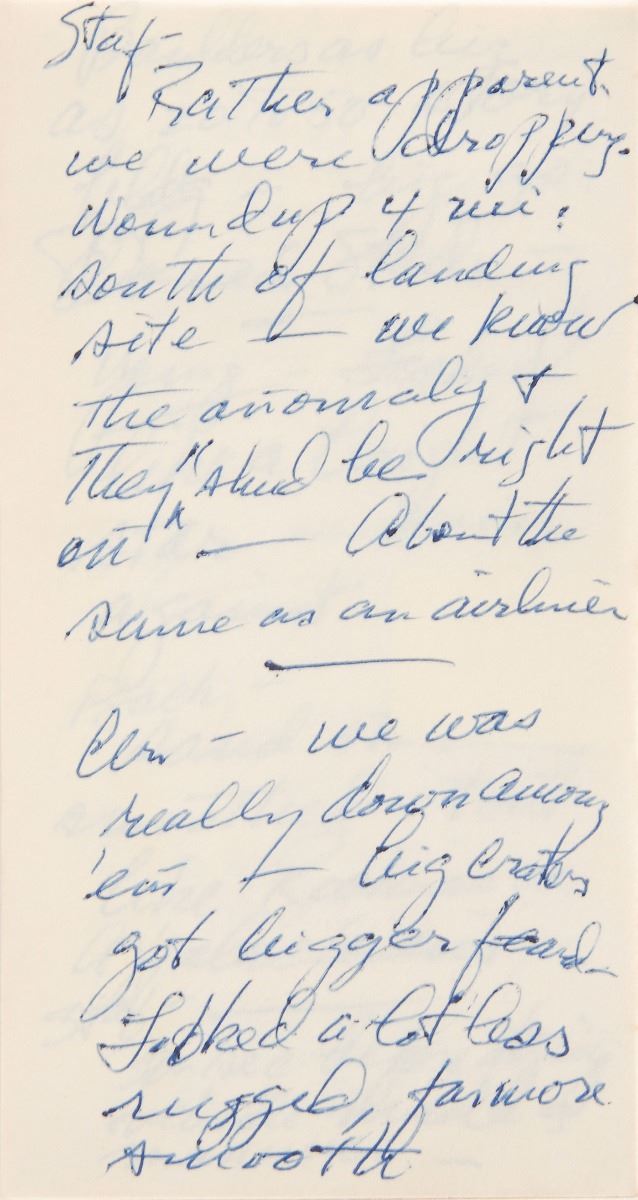 Staf-
Rather apparent
we were dropping.
Wound up 4 mi.
south of landing
site — we know
the anomaly +
they "shud be right
on" — About the
same as an airliner
Cern - we was
really down among
'em — big craters
got bigger
Looked a lot less
rugged, far more
smooth